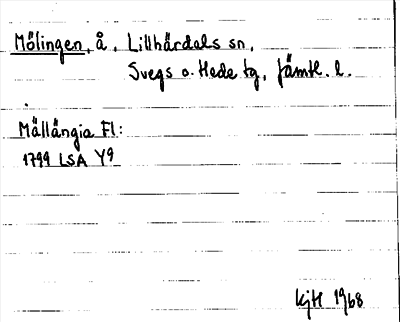 Mölingen, å, Lillhärdals sn,
Svegs o. Hede tg, Jämtl. l.
Mällängia Fl:
1799 LSA Y9
KjH 1968